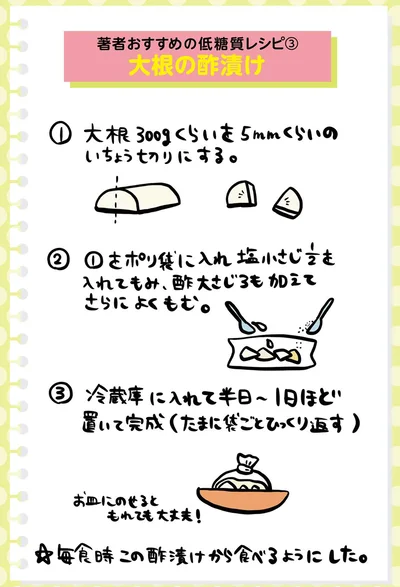 著者おすすめの低糖質レシピ③
大根の酢漬け
① 大根 300gくらいを5mmくらいの
いちょう切りにする。
② ①をポリ袋に入れ 塩小さじ1/2を
入れてもみ、酢大さじ3も加えて
さらによくもむ。
③ 冷蔵庫に入れて半日〜1日ほど
置いて完成(たまに袋ごとひっくり返す)
お皿にのせると
もれても大丈夫!
☆毎食時この酢漬けから食べるようにした。